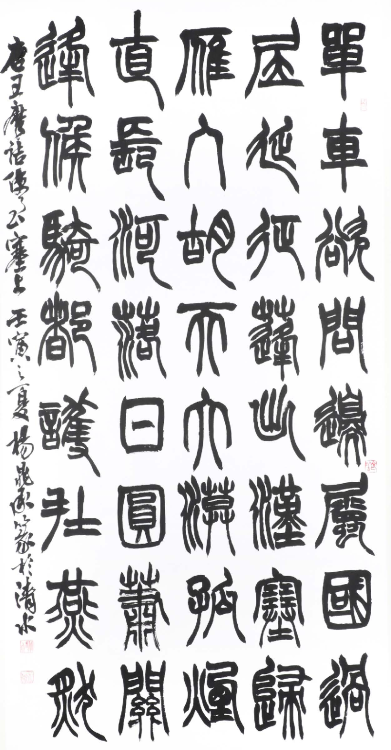 單車欲問邊屬國過
居延征蓬出漢塞歸
雁入胡天大漠孤煙
直長河落日圓蕭關
逢候騎都護在燕然
唐王摩詰使至塞上 壬寅之夏楊篆於清水